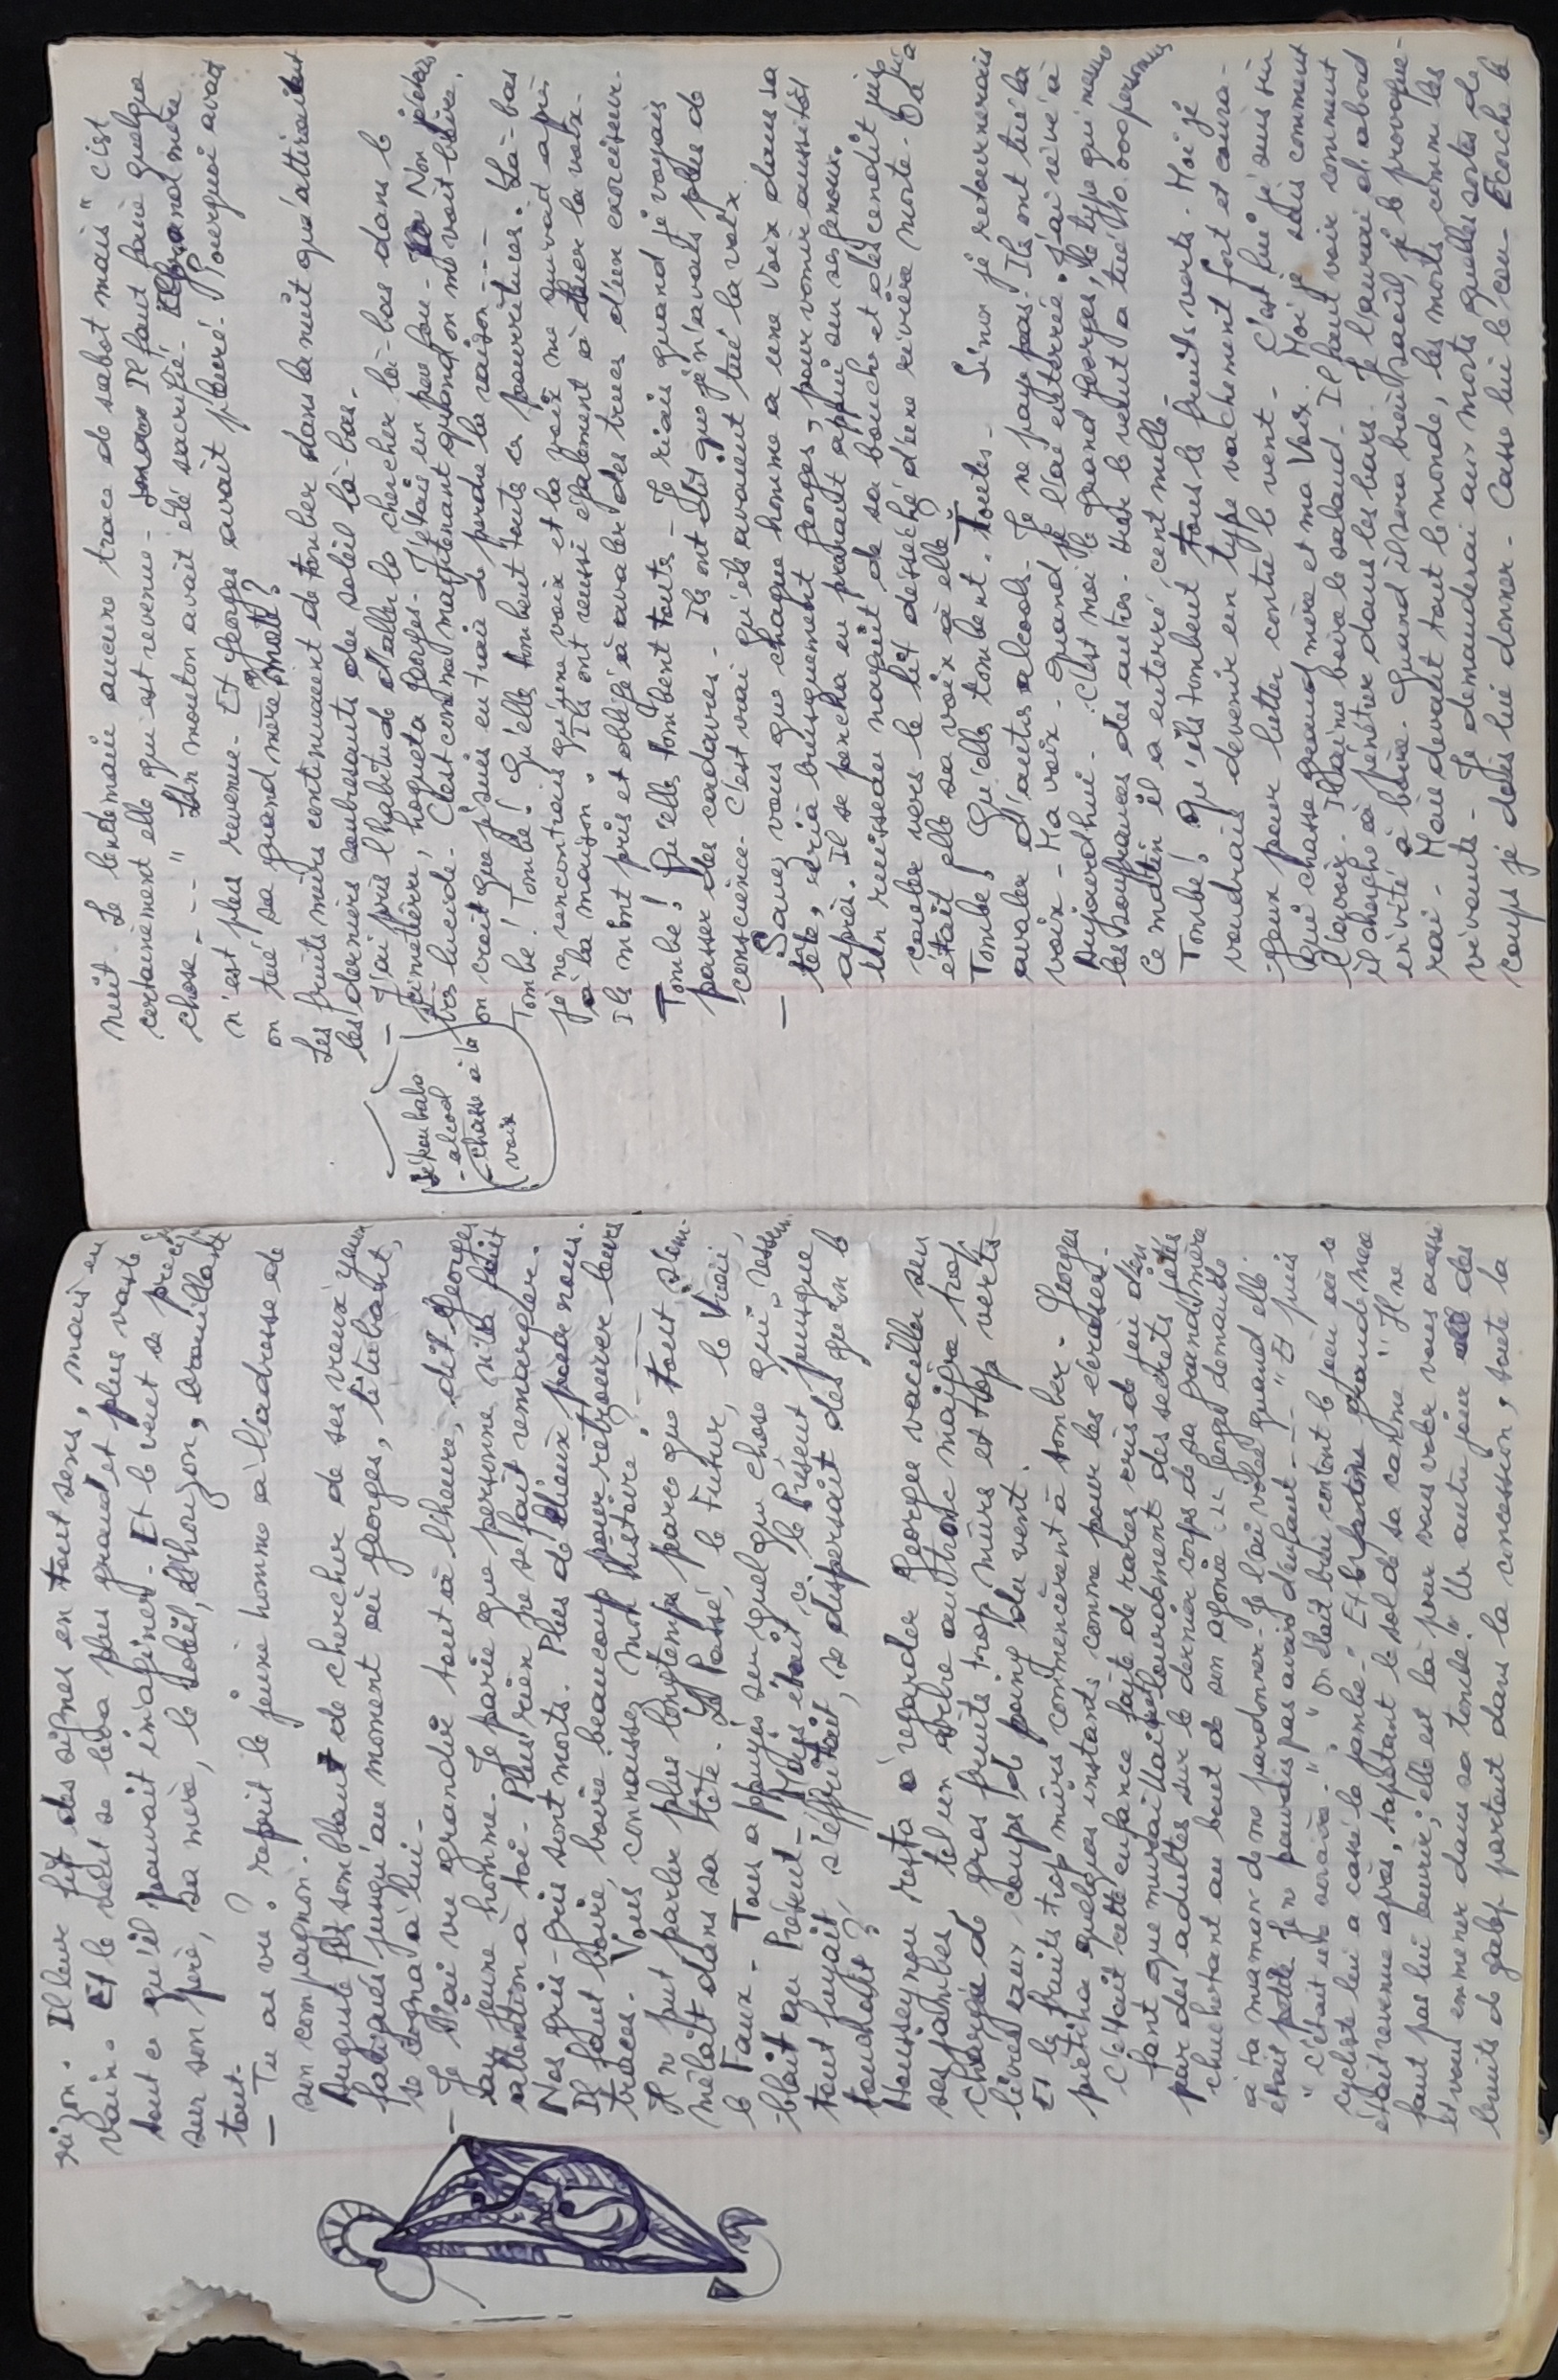 rizon. Il leur fit des signes en tout sens, mais en
vain. Et le soleil se leva plus grand et plus vaste
tout ce qu'il pouvait imaginer. Et le vent se
sur son père, sa mère, le soleil, l'horizon, brouillant
tout.
— Tu as vu ? reprit le jeune homme à l'adresse de
son compagnon.
Auguste fit semblant de chercher de ses vieux yeux
fatigués jusqu'au moment où Georges, titubant,
se cogna à lui.
— Je t'ai vu grandir tout à l'heure, dit Georges
au jeune homme. Je parie que personne n'a fait
attention à toi. Plus rien ne se fait remarquer.
Nos gris-gris sont morts. Plus de dieux pour nous.
Il faut boire, boire beaucoup pour retrouver leurs
traces. Vous connaissez mon histoire ? ——
Il ne put parler plus longtemps parce que tout s'em-
mêlait dans sa tête. Le Passé, le Futur, le Vrai,
le Faux. Tous appuyés sur quelque chose qui ressem-
blait au Présent. Mais était-ce le Présent puisque
tout fuyait, s'effritait, se dispersait dès qu'on le
touchait ?
Housseynou resta à regarder Georges vaciller sur
ses jambes, tel un arbre au tronc maigre trop
chargé de gros fruits trop mûrs et trop verts
livrés aux coups de poing du vent.
Et les fruits trop mûrs commencèrent à tomber. Georges
piétina quelques instants comme pour les écraser.
C'était cette enfance faite de rares cris de joie d'en
fant que murmuraient lourdement des secrets jetés
par des adultes sur le dernier corps de sa grand mère
chuchotant au bout de son agonie : " Georges demande
à ta maman de me pardonner. Je l'ai volée quand elle
était petite. Je ne pouvais pas avoir d'enfant --- " Et puis
" c'était une sorcière. " " on était bien content le jour où ce
cycliste lui a cassé la jambe. " Et le fantôme grand mère
était revenue après, tapotant le sol de sa canne. " Il ne
faut pas lui ouvrir ; elle est là pour vous voler vous aussi
et vous emmener dans sa tombe. " Un autre jour des
bruits de galop partout dans la concession, toute la
nuit. Le lendemain aucune trace de sabot mais " c'est
certainement elle qui est revenue. Il faut faire quelque
chose --- " Un mouton avait été sacrifié. grand mère
n'est plus revenue. Et Georges avait pleuré. Pourquoi avait
on tué sa grand mère morte ?
Les fruits mûrs continuaient de tomber dans la nuit qu'attiraient
les derniers soubresauts du soleil là-bas.
— J'ai pris l'habitude d'aller le chercher là-bas dans le
cimetière, hoqueta Georges. J'étais un peu fou. Non j'étais
très lucide. C'est comme maintenant quand on me voit boire,
on croit que je suis en train de perdre la raison ---
alcool
- chasse à la
voix
Tombe ! Tombe ! Qu'elle tombent toutes ces pourritures. Là-bas
je ne rencontrais qu'une voix et la voix me suivait après
à la maison. Ils ont réussi également à tuer la voix.
Ils m'ont pris et obligé à avaler des trucs d'un exorciseur.
Tombe ! Qu'elle tombent toutes. Je riais quand je voyais
passer des cadavres. Ils ont dit que je n'avais plus de
conscience. C'est vrai qu'ils avaient tué la voix.
— Savez vous que chaque homme a une Voix dans sa
tête, cria brusquement Georges, pour vomir aussitôt
après. Il se pencha en prenant appui sur ses genoux.
Un ruisseau naquit de sa bouche et descendit
couler vers le lit desséché d'une rivière morte. Où
était elle sa voix à elle ?
Tombe ! Qu'elles tombent. Toutes. Sinon je retournerais
avaler d'autres alcools. Je ne paye pas. Ils ont tué la
voix. Ma voix. Quand je l'ai enterrée. J'ai rêvé à
Aujourd'hui. C'est moi le grand Georges, le type qui mesure
les souffrances des autres. Hier le vent a tué 110.000 personnes
Ce matin il a enterré cent mille.
Tombe ! Qu'ils tombent tous les fruits verts. Moi je
voudrais devenir un type vachement fort et coura-
geux pour lutter contre le vent. C'est lui j'en suis sûr
qui chasse grand mère et ma Voix. Moi je sais comment
l'avoir. Il aime boire le salaud. Il faut voir comment
il cherche à pénétrer dans les bars. Je l'aurai d'abord
invité à boire. Quand il sera bien saoûl, je le provoque-
rai. Mais devant tout le monde, les morts comme les
vivants. Je demanderai aux morts quelles sortes de
coups je dois lui donner. Casse lui le cou. Ecorche le